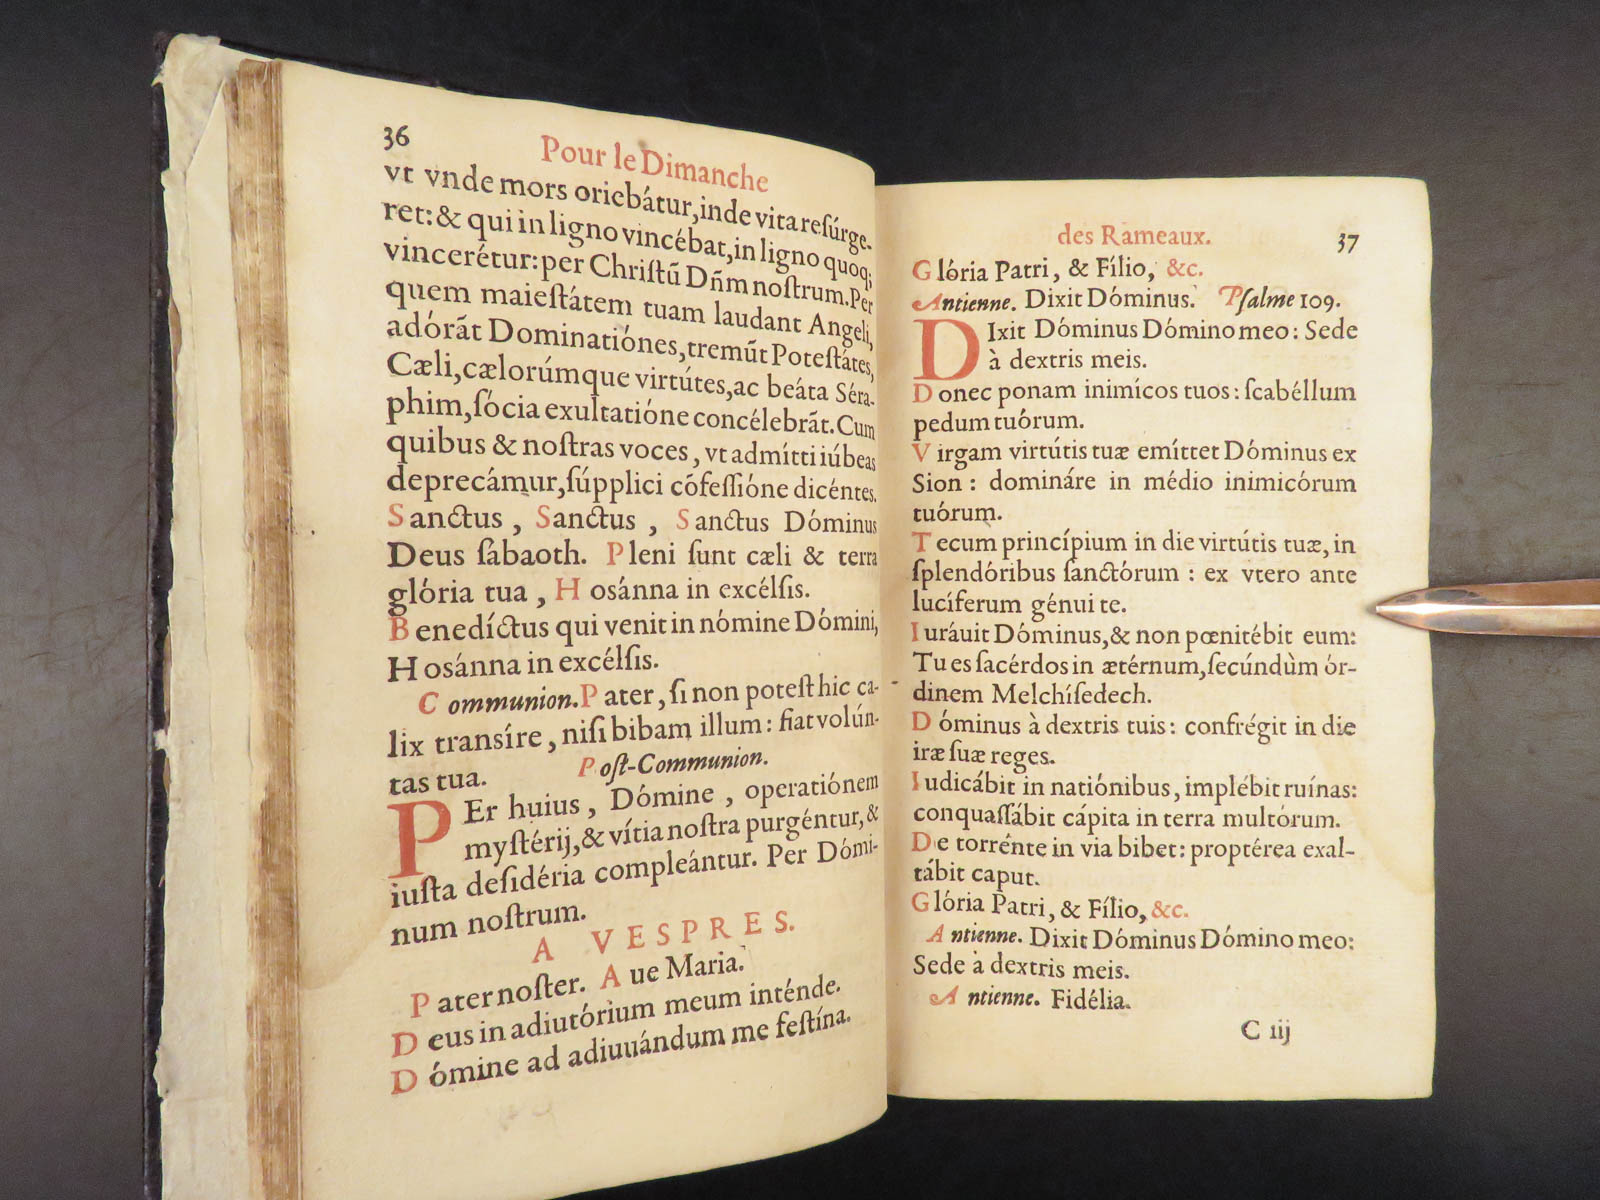 36
Pour le Dimanche
vt vnde mors oriebátur, inde vita reſúrge-
ret: & qui in ligno vincébat, in ligno quoq;
vincerétur: per Chriſtũ Dñm noſtrum. Per
quem maieſtátem tuam laudant Angeli,
adórãt Dominatiónes, tremũt Poteſtátes,
Cæli, cælorúmque virtútes, ac beáta Séra-
phim, ſócia exultatióne concélebrãt. Cum
quibus & noſtras voces, vt admítti iúbeas
deprecámur, ſúpplici cõfeſſióne dicéntes.
Sanctus, Sanctus, Sanctus Dóminus
Deus ſábaoth. Pleni ſunt cæli & terra
glória tua, Hosánna in excélſis.
Benedíctus qui venit in nómine Dómini,
Hosánna in excélſis.
Communion. Pater, ſi non poteſt hic ca-
lix transíre, niſi bibam illum: fiat volún-
tas tua. Poſt-Communion.
PEr huius, Dómine, operatiónem
myſtérij, & vítia noſtra purgéntur, &
iuſta deſidéria compleántur. Per Dómi-
num noſtrum.
A VESPRES.
Pater noſter. Aue Maria.
Deus in adiutórium meum inténde.
Dómine ad adiuuándum me feſtína.
des Rameaux.
37
Glória Patri, & Fílio, &c.
Antienne. Dixit Dóminus. Pſalme 109.
DIxit Dóminus Dómino meo: Sede
à dextris meis.
Donec ponam inimícos tuos: ſcabéllum
pedum tuórum.
Virgam virtútis tuæ emíttet Dóminus ex
Sion: domináre in médio inimicórum
tuórum.
Tecum princípium in die virtútis tuæ, in
ſplendóribus ſanctórum: ex vtero ante
lucíferum génui te.
Iuráuit Dóminus, & non pœnitébit eum:
Tu es ſacérdos in ætérnum, ſecúndùm ór-
dinem Melchíſedech.
Dóminus à dextris tuis: confrégit in die
iræ ſuæ reges.
Iudicábit in natiónibus, implébit ruínas:
conquaſſábit cápita in terra multórum.
De torrénte in via bibet: proptérea exal-
tábit caput.
Glória Patri, & Fílio, &c.
Antienne. Dixit Dóminus Dómino meo:
Sede à dextris meis.
Antienne. Fidélia.
C iij